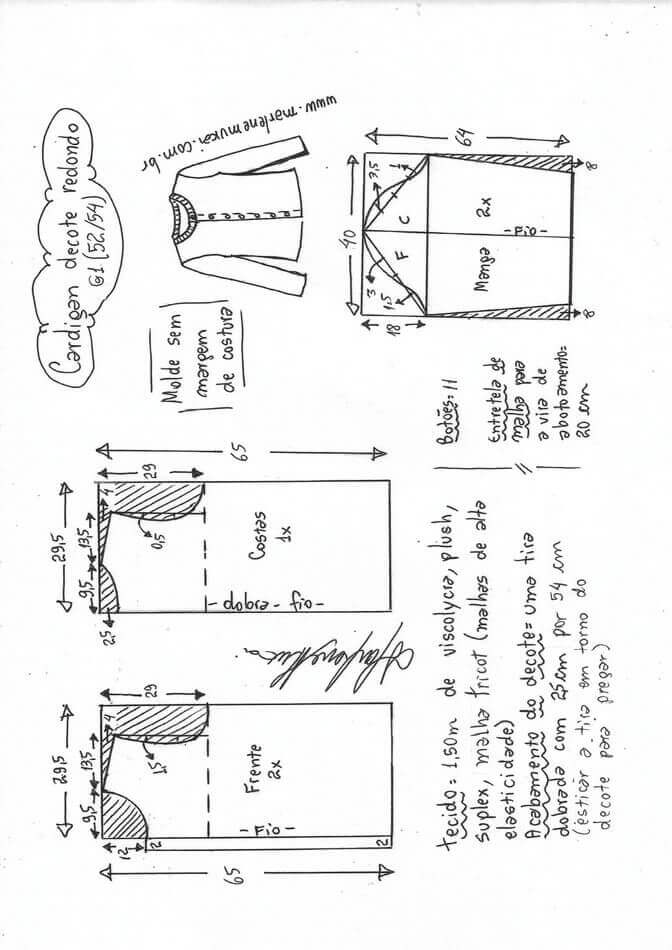 Cardigan decote redondo
G1 (52/54)
www.marlenemukai.com.br
Molde sem
margem
de costura
40
64
18
3
1,5
3,5
1
F
C
Manga
2x
-Fio-
8
8
29,5
9,5
13,5
4
29
65
25
0,5
Costas
1x
dobra - fio-
29,5
9,5
13,5
4
29
65
12
2
1,5
Frente
2x
-Fio-
2
Tecido = 1.50m de viscolycra, plush,
suplex, malha tricot (malhas de alta
elasticidade)
Acabamento do decote = uma tira
dobrada com 25cm por 54 cm
(esticar a tira em torno do
decote para pregar)
Botões = 11
Entretela de
malha para
a vira de
abotoamento=
20 cm